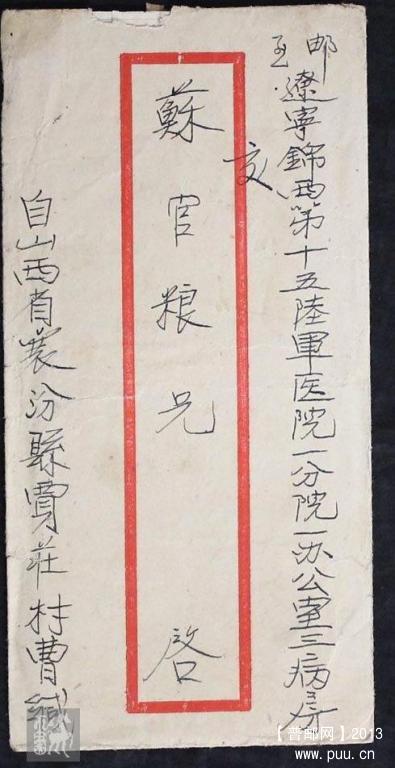 邮至
遼寧錦西第十五陸軍医院一分院一办公室三病房
交
蘇官粮兄 啓
自山西省襄汾縣賈莊村曹缄
【普邮网】2013
www.puu.cn